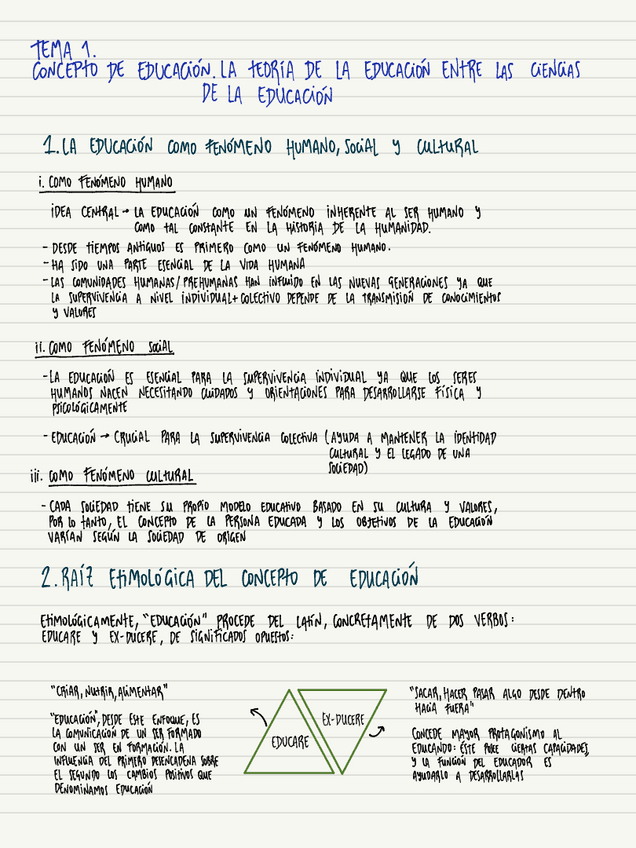 TEMA 1.
CONCEPTO DE EDUCACIÓN. LA TEORÍA DE LA EDUCACIÓN ENTRE LAS CIENCIAS
DE LA EDUCACIÓN
1. LA EDUCACIÓN COMO FENÓMENO HUMANO, SOCIAL Y CULTURAL
i. COMO FENÓMENO HUMANO
IDEA CENTRAL → LA EDUCACIÓN COMO UN FENÓMENO INHERENTE AL SER HUMANO Y
COMO TAL CONSTANTE EN LA HISTORIA DE LA HUMANIDAD.
- DESDE TIEMPOS ANTIGUOS ES PRIMERO COMO UN FENÓMENO HUMANO.
- HA SIDO UNA PARTE ESENCIAL DE LA VIDA HUMANA
- LAS COMUNIDADES HUMANAS/PREHUMANAS HAN INFLUIDO EN LAS NUEVAS GENERACIONES YA QUE
LA SUPERVIVENCIA A NIVEL INDIVIDUAL+COLECTIVO DEPENDE DE LA TRANSMISIÓN DE CONOCIMIENTOS
Y VALORES
ii. COMO FENÓMENO SOCIAL
- LA EDUCACIÓN ES ESENCIAL PARA LA SUPERVIVENCIA INDIVIDUAL YA QUE LOS SERES
HUMANOS NACEN NECESITANDO CUIDADOS Y ORIENTACIONES PARA DESARROLLARSE FÍSICA Y
PSICOLÓGICAMENTE
- EDUCACIÓN → CRUCIAL PARA LA SUPERVIVENCIA COLECTIVA (AYUDA A MANTENER LA IDENTIDAD
CULTURAL Y EL LEGADO DE UNA
SOCIEDAD)
iii. COMO FENÓMENO CULTURAL
- CADA SOCIEDAD TIENE SU PROPIO MODELO EDUCATIVO BASADO EN SU CULTURA Y VALORES,
POR LO TANTO, EL CONCEPTO DE LA PERSONA EDUCADA Y LOS OBJETIVOS DE LA EDUCACIÓN
VARÍAN SEGÚN LA SOCIEDAD DE ORIGEN
2. RAÍZ ETIMOLÓGICA DEL CONCEPTO DE EDUCACIÓN
ETIMOLÓGICAMENTE, "EDUCACIÓN" PROCEDE DEL LATÍN, CONCRETAMENTE DE DOS VERBOS:
EDUCARE Y EX-DUCERE, DE SIGNIFICADOS OPUESTOS:
"CRIAR, NUTRIR, ALIMENTAR"
"EDUCACIÓN", DESDE ESTE ENFOQUE, ES
LA COMUNICACIÓN DE UN SER FORMADO
CON UN SER EN FORMACIÓN. LA
INFLUENCIA DEL PRIMERO DESENCADENA SOBRE
EL SEGUNDO LOS CAMBIOS POSITIVOS QUE
DENOMINAMOS EDUCACIÓN
EDUCARE
EX-DUCERE
"SACAR, HACER PASAR ALGO DESDE DENTRO
HACIA FUERA"
CONCEDE MAYOR PROTAGONISMO AL
EDUCANDO: ÉSTE POSEE CIERTAS CAPACIDADES,
Y LA FUNCIÓN DEL EDUCADOR ES
AYUDARLO A DESARROLLARLAS